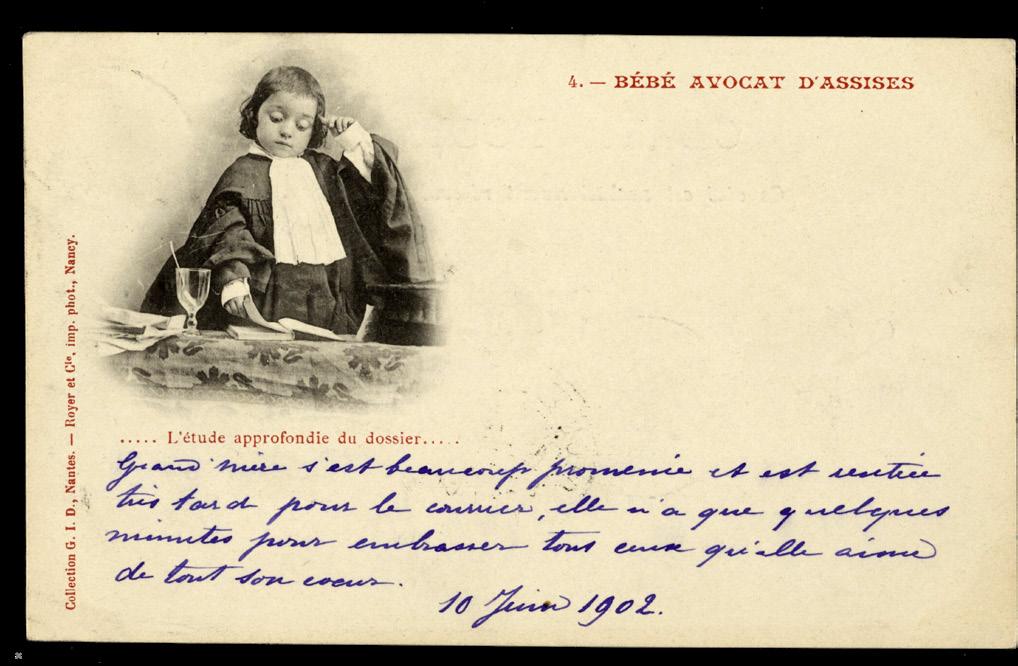 4. — BÉBÉ AVOCAT D'ASSISES
Collection G. I. D., Nantes. — Royer et Cie, imp. phot., Nancy.
..... L'étude approfondie du dossier.....
Grand'mère s'est beaucoup promenée et est rentrée
très tard pour le courrier, elle n'a que quelques
minutes pour embrasser tous ceux qu'elle aime
de tout son coeur.
10 Juin 1902.